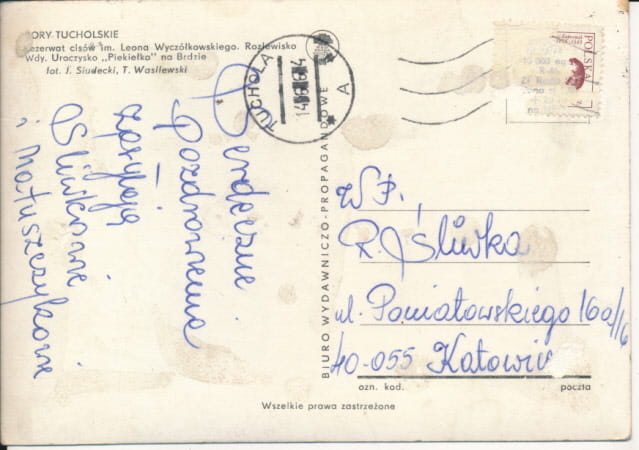 BORY TUCHOLSKIE
Rezerwat cisów im. Leona Wyczółkowskiego. Rozlewisko
Wdy. Uroczysko „Piekiełko" na Brdzie
fot. I. Siudecki, T. Wasilewski
TUCHOLA
A
POLSKA
Serdeczne
Pozdrowienia
zasyłają
Śliwkowie
i Matuszczykowie
BIURO WYDAWNICZO-PROPAGANDOWE
W P.
R. Śliwka
ul. Poniatowskiego 16a/16
40-055 Katowic
ozn. kod. poczta
Wszelkie prawa zastrzeżone